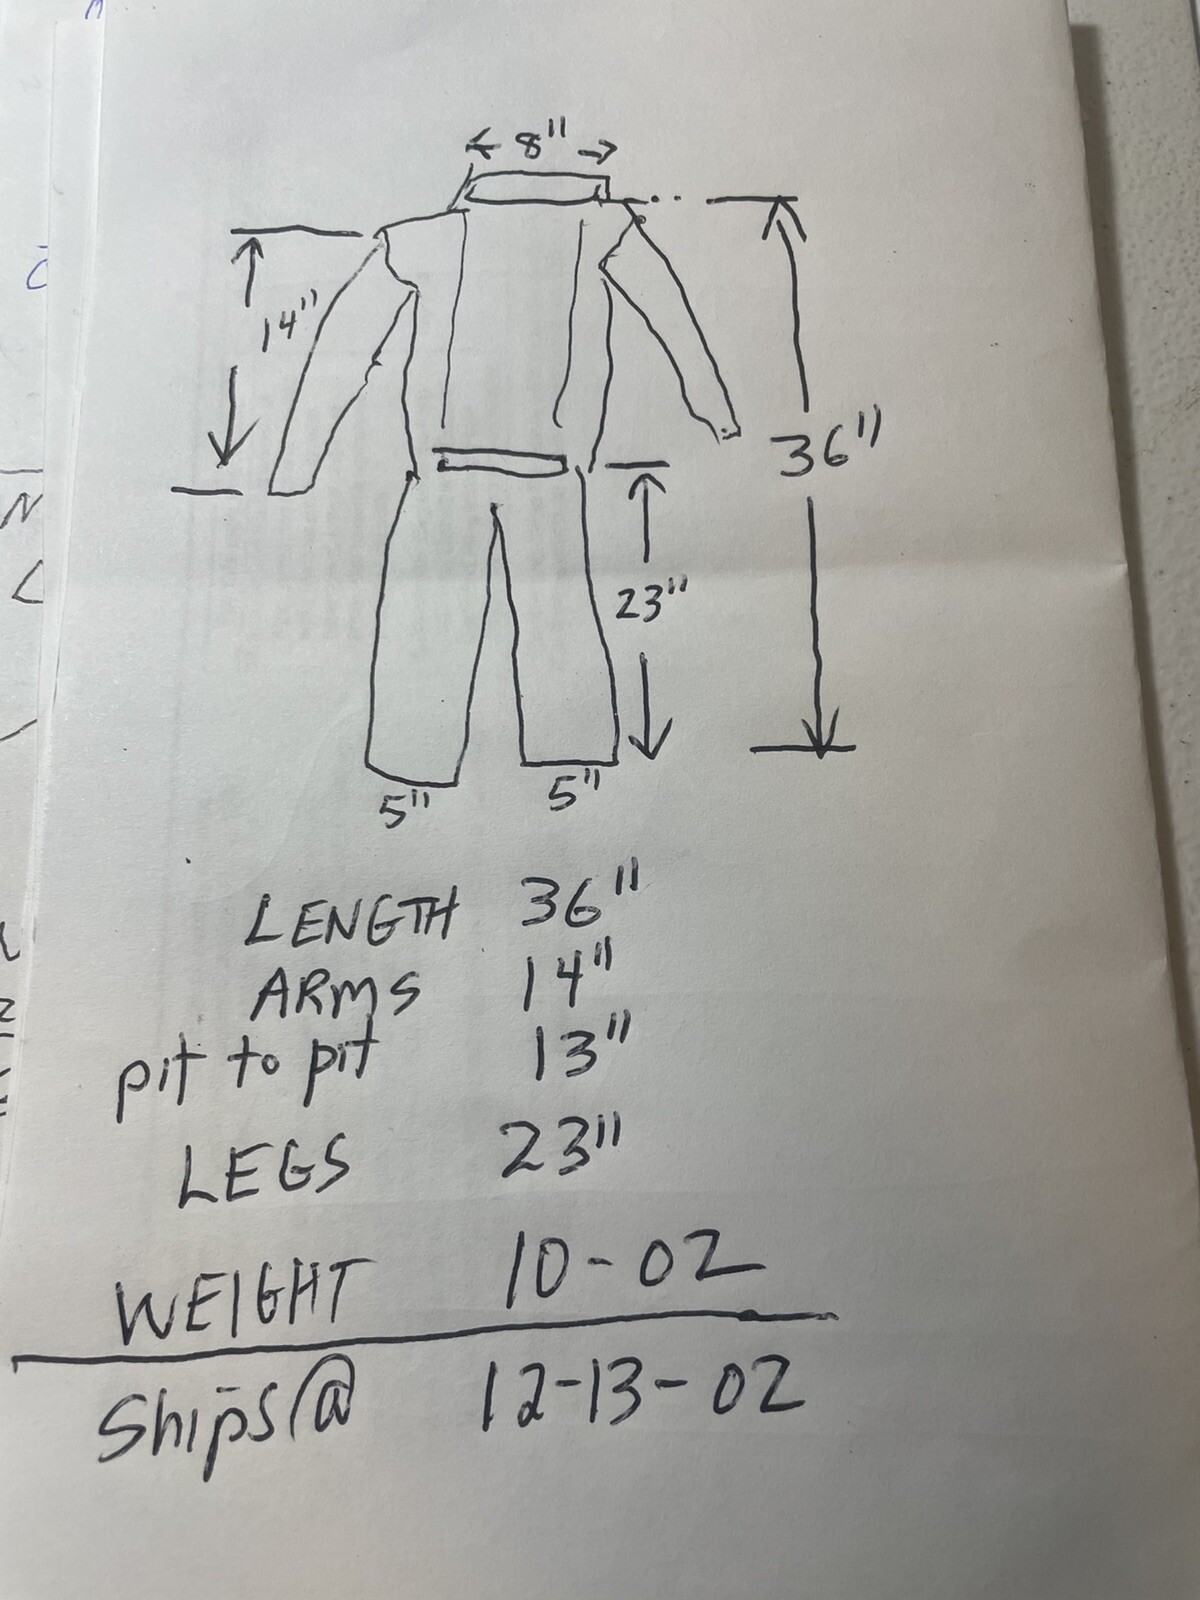 8"
14"
36"
23"
5" 5"
LENGTH 36"
ARMS 14"
pit to pit 13"
LEGS 23"
WEIGHT 10-OZ
Ships@ 12-13-OZ